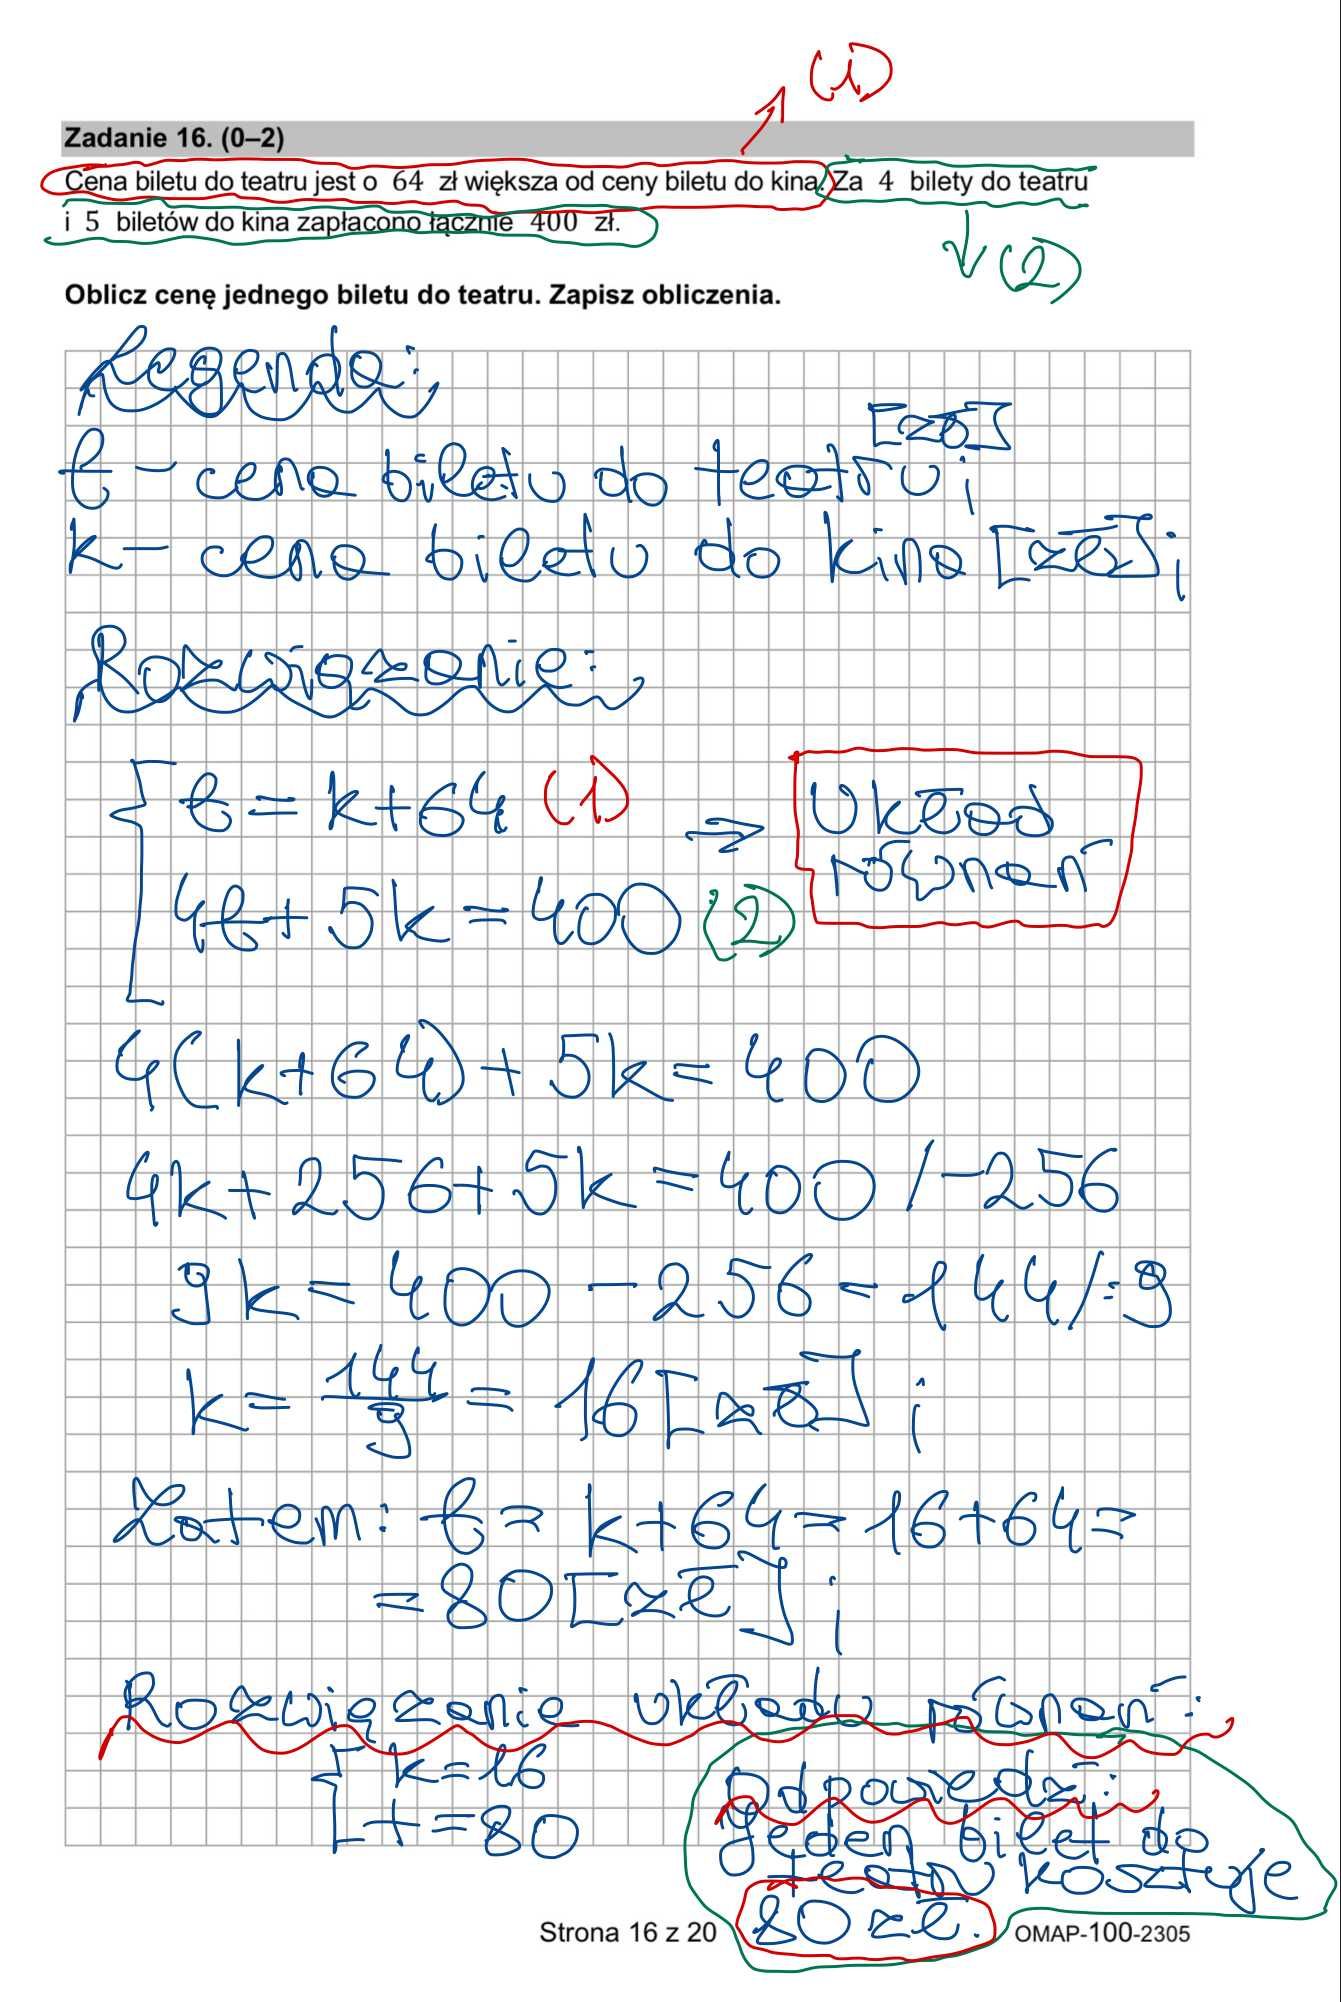 (1)
Zadanie 16. (0–2)
Cena biletu do teatru jest o 64 zł większa od ceny biletu do kina. Za 4 bilety do teatru
i 5 biletów do kina zapłacono łącznie 400 zł.
(2)
Oblicz cenę jednego biletu do teatru. Zapisz obliczenia.
Legenda:
t – cena biletu do teatru [zł];
k – cena biletu do kina [zł];
Rozwiązanie:
t = k+64 (1)
⇒ Układ
równań
4t + 5k = 400 (2)
4(k+64) + 5k = 400
4k + 256 + 5k = 400 /-256
9k = 400 - 256 = 144 /:9
k = 144/9 = 16 [zł];
Zatem: t = k+64 = 16+64 =
= 80 [zł];
Rozwiązanie układu równań:
k = 16
t = 80
Odpowiedź:
Jeden bilet do
teatru kosztuje
80 zł.
Strona 16 z 20
OMAP-100-2305